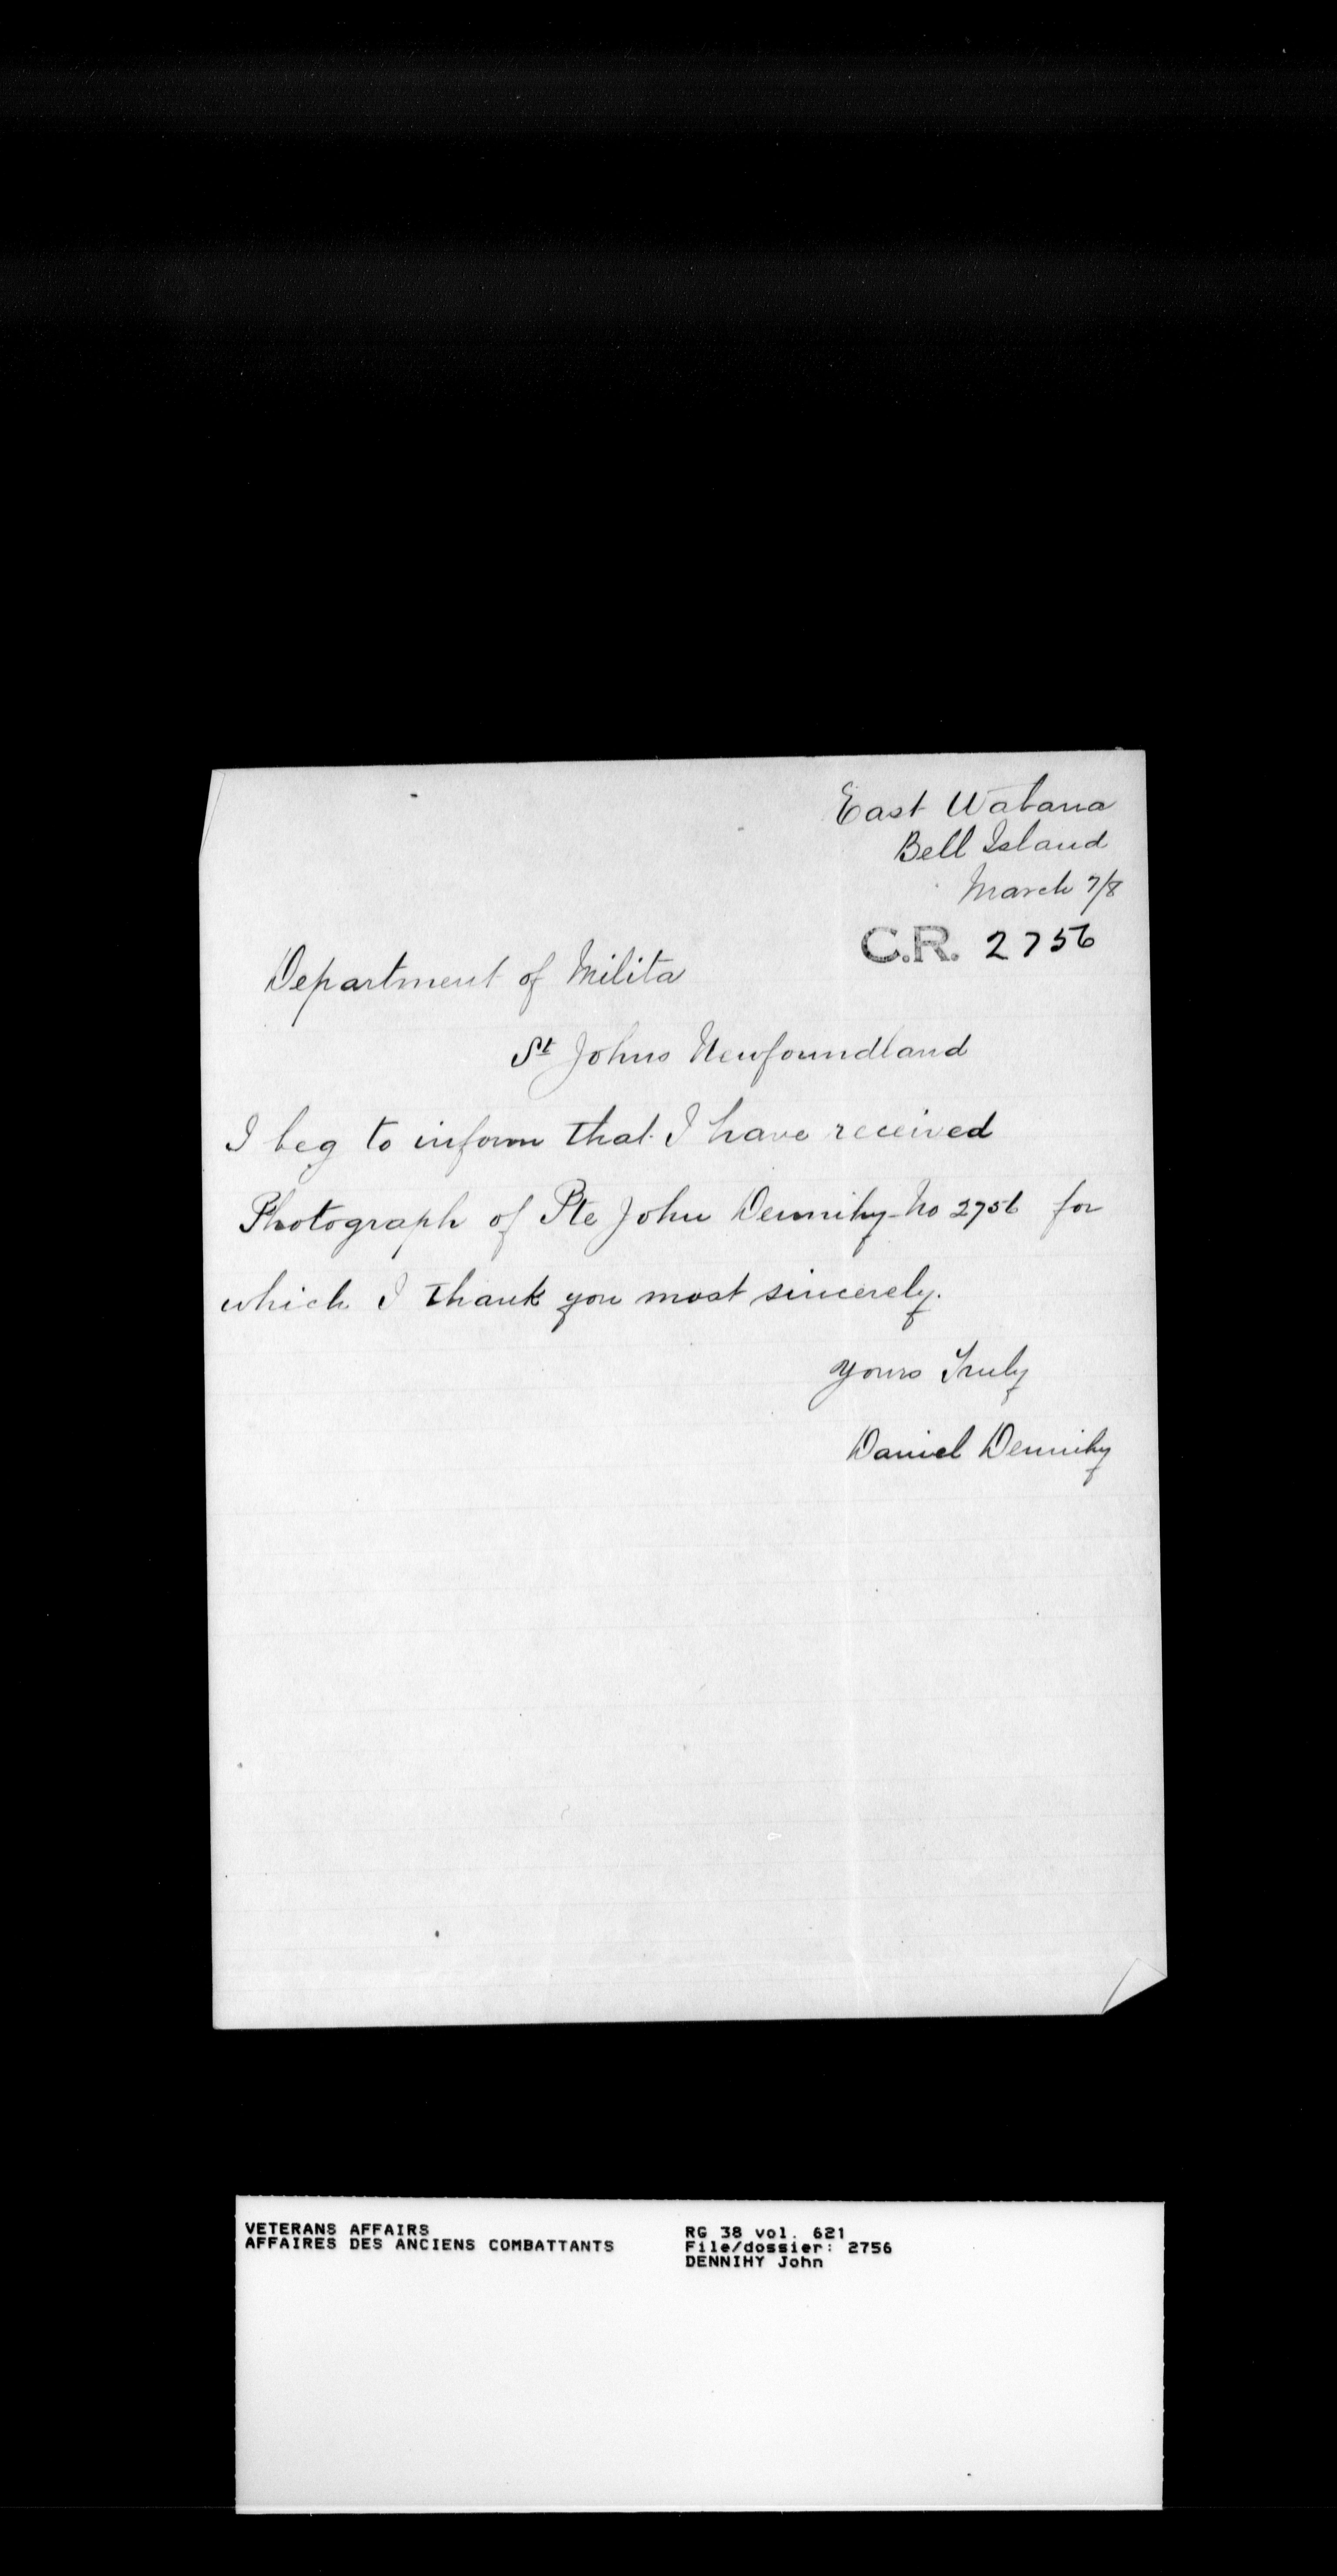 East Wabana
Bell Island
March 7/8
C.R. 2756
Department of Milita
St Johns Newfoundland
I beg to inform that I have received
Photograph of Pte John Dennihy No 2756 for
which I thank you most sincerely.
Yours Truly
Daniel Dennihy
VETERANS AFFAIRS
AFFAIRES DES ANCIENS COMBATTANTS
RG 38 vol. 621
File/dossier: 2756
DENNIHY John